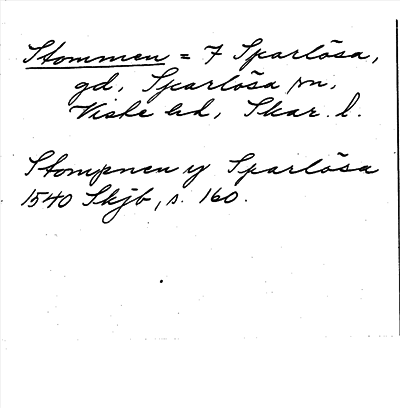 Stommen = 7 Sparlösa,
gd, Sparlösa sn,
Viste hd, Skar. l.
Stompnen y Sparlösa
1540 Skjb, s. 160.